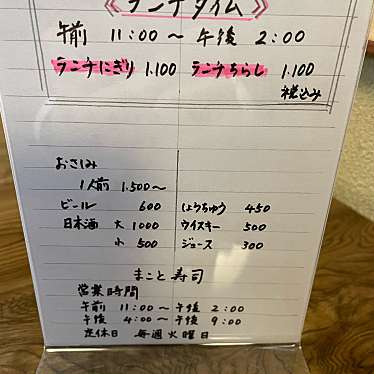 《ランチタイム》
午前 11:00〜午後 2:00
ランチにぎり 1.100 ランチちらし 1.100
税込み
おさしみ
1人前 1.500〜
ビール 600 しょうちゅう 450
日本酒 大 1000 ウイスキー 500
小 500 ジュース 300
まこと寿司
営業時間
午前 11:00〜午後 2:00
午後 4:00〜午後 9:00
定休日 毎週火曜日